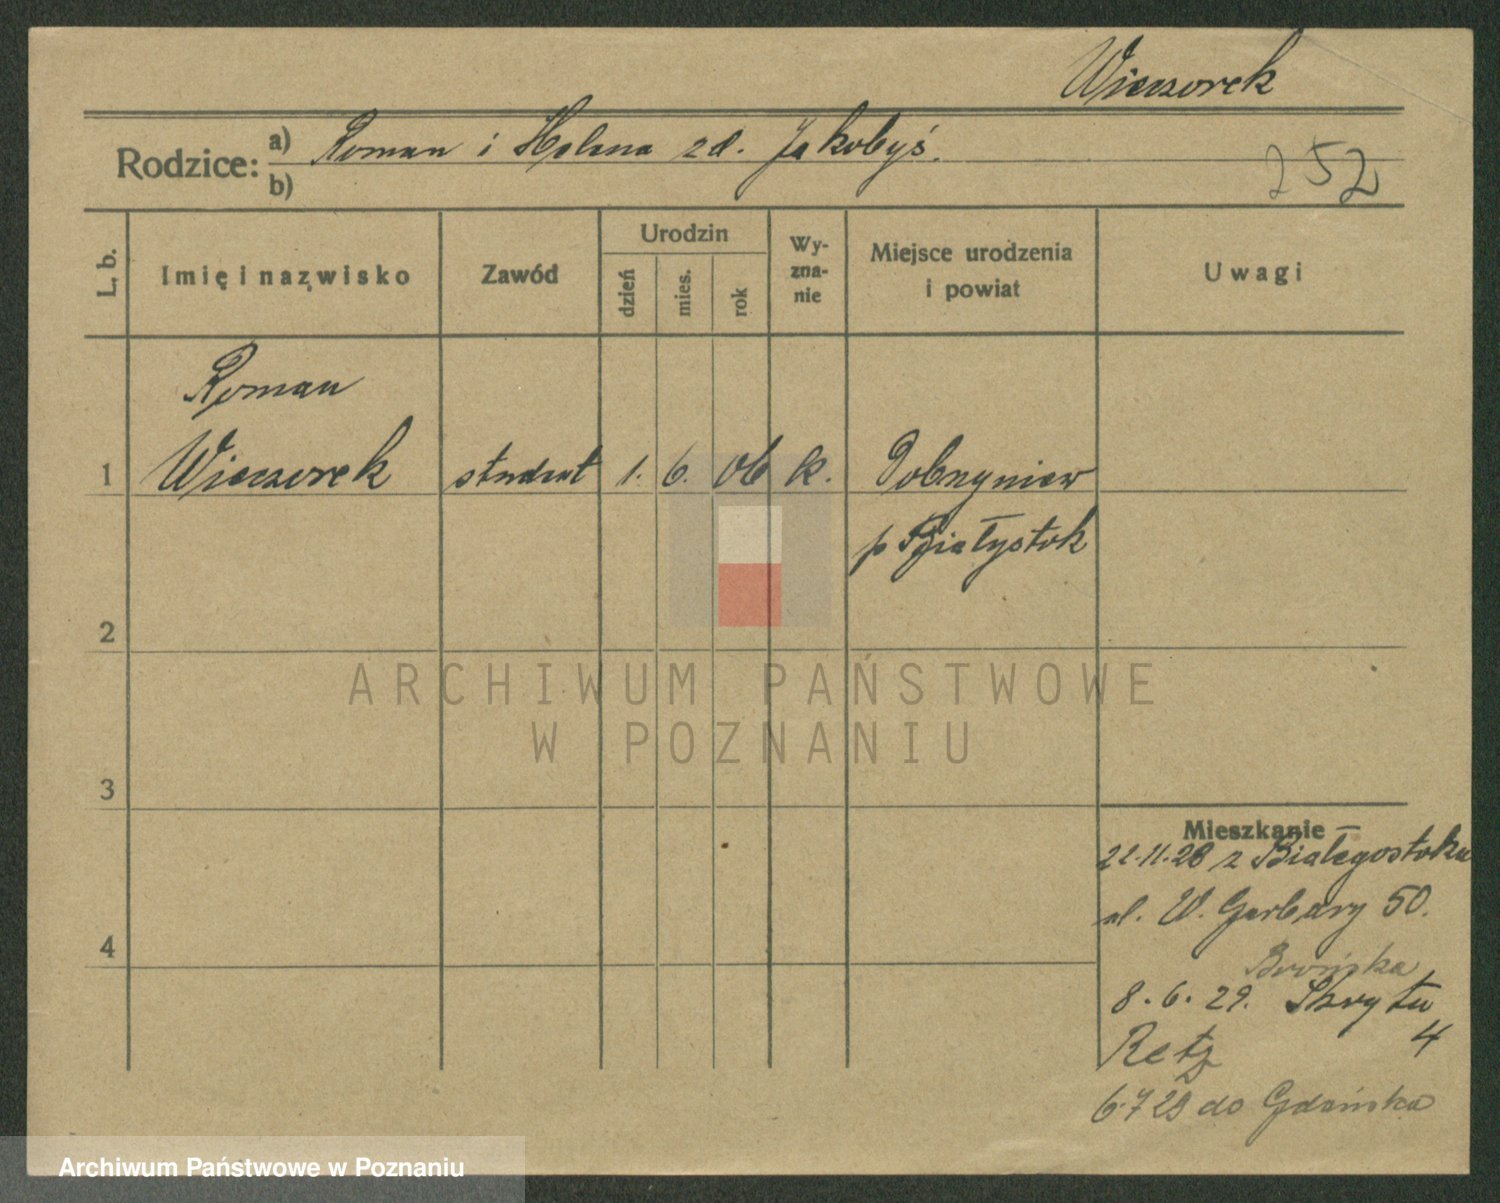 Wieczorek
Rodzice: a) Roman i Helena zd. Jakobyś.
b)
252
L. b.
Imię i nazwisko
Zawód
Urodzin
dzień
mies.
rok
Wy-
zna-
nie
Miejsce urodzenia
i powiat
Uwagi
Roman
1 Wieczorek student 1. 6. 06 k. Dobryniew
p Białystok
2
3
4
ARCHIWUM PAŃSTWOWE
W POZNANIU
Mieszkanie
22.11.28 z Białegostoku
ul. W. Garbary 50.
Brońska
8.6.29. Skryta
4
Retz
6.7 29 do Gdańska
Archiwum Państwowe w Poznaniu